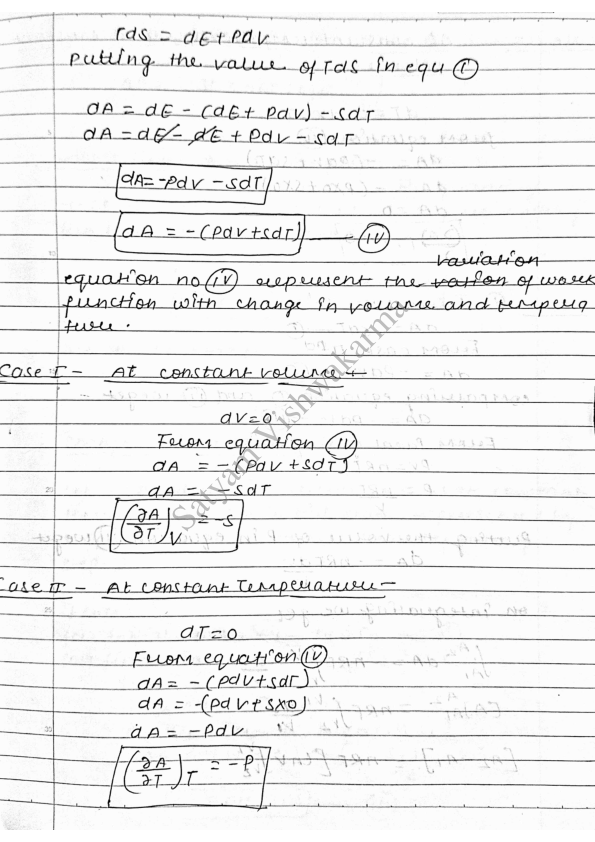 Tds = dE + Pdv
Putting the value of Tds in equ (i)
dA = dE - (dE + Pdv) - SdT
dA = dE - dE + Pdv - SdT
dA = -Pdv - SdT
dA = -(Pdv + SdT) — (iv)
variation
equation no (iv) represent the of work
function with change in volume and tempera
ture.
Case I - At constant volume -
dv = 0
From equation (iv)
dA = -(Pdv + SdT)
dA = -SdT
(∂A/∂T)V = -S
Case II - At constant Temperature -
dT = 0
From equation (iv)
dA = -(Pdv + SdT)
dA = -(Pdv + S×0)
dA = -Pdv
(∂A/∂T)T = -P
Satyam Vishwakarma